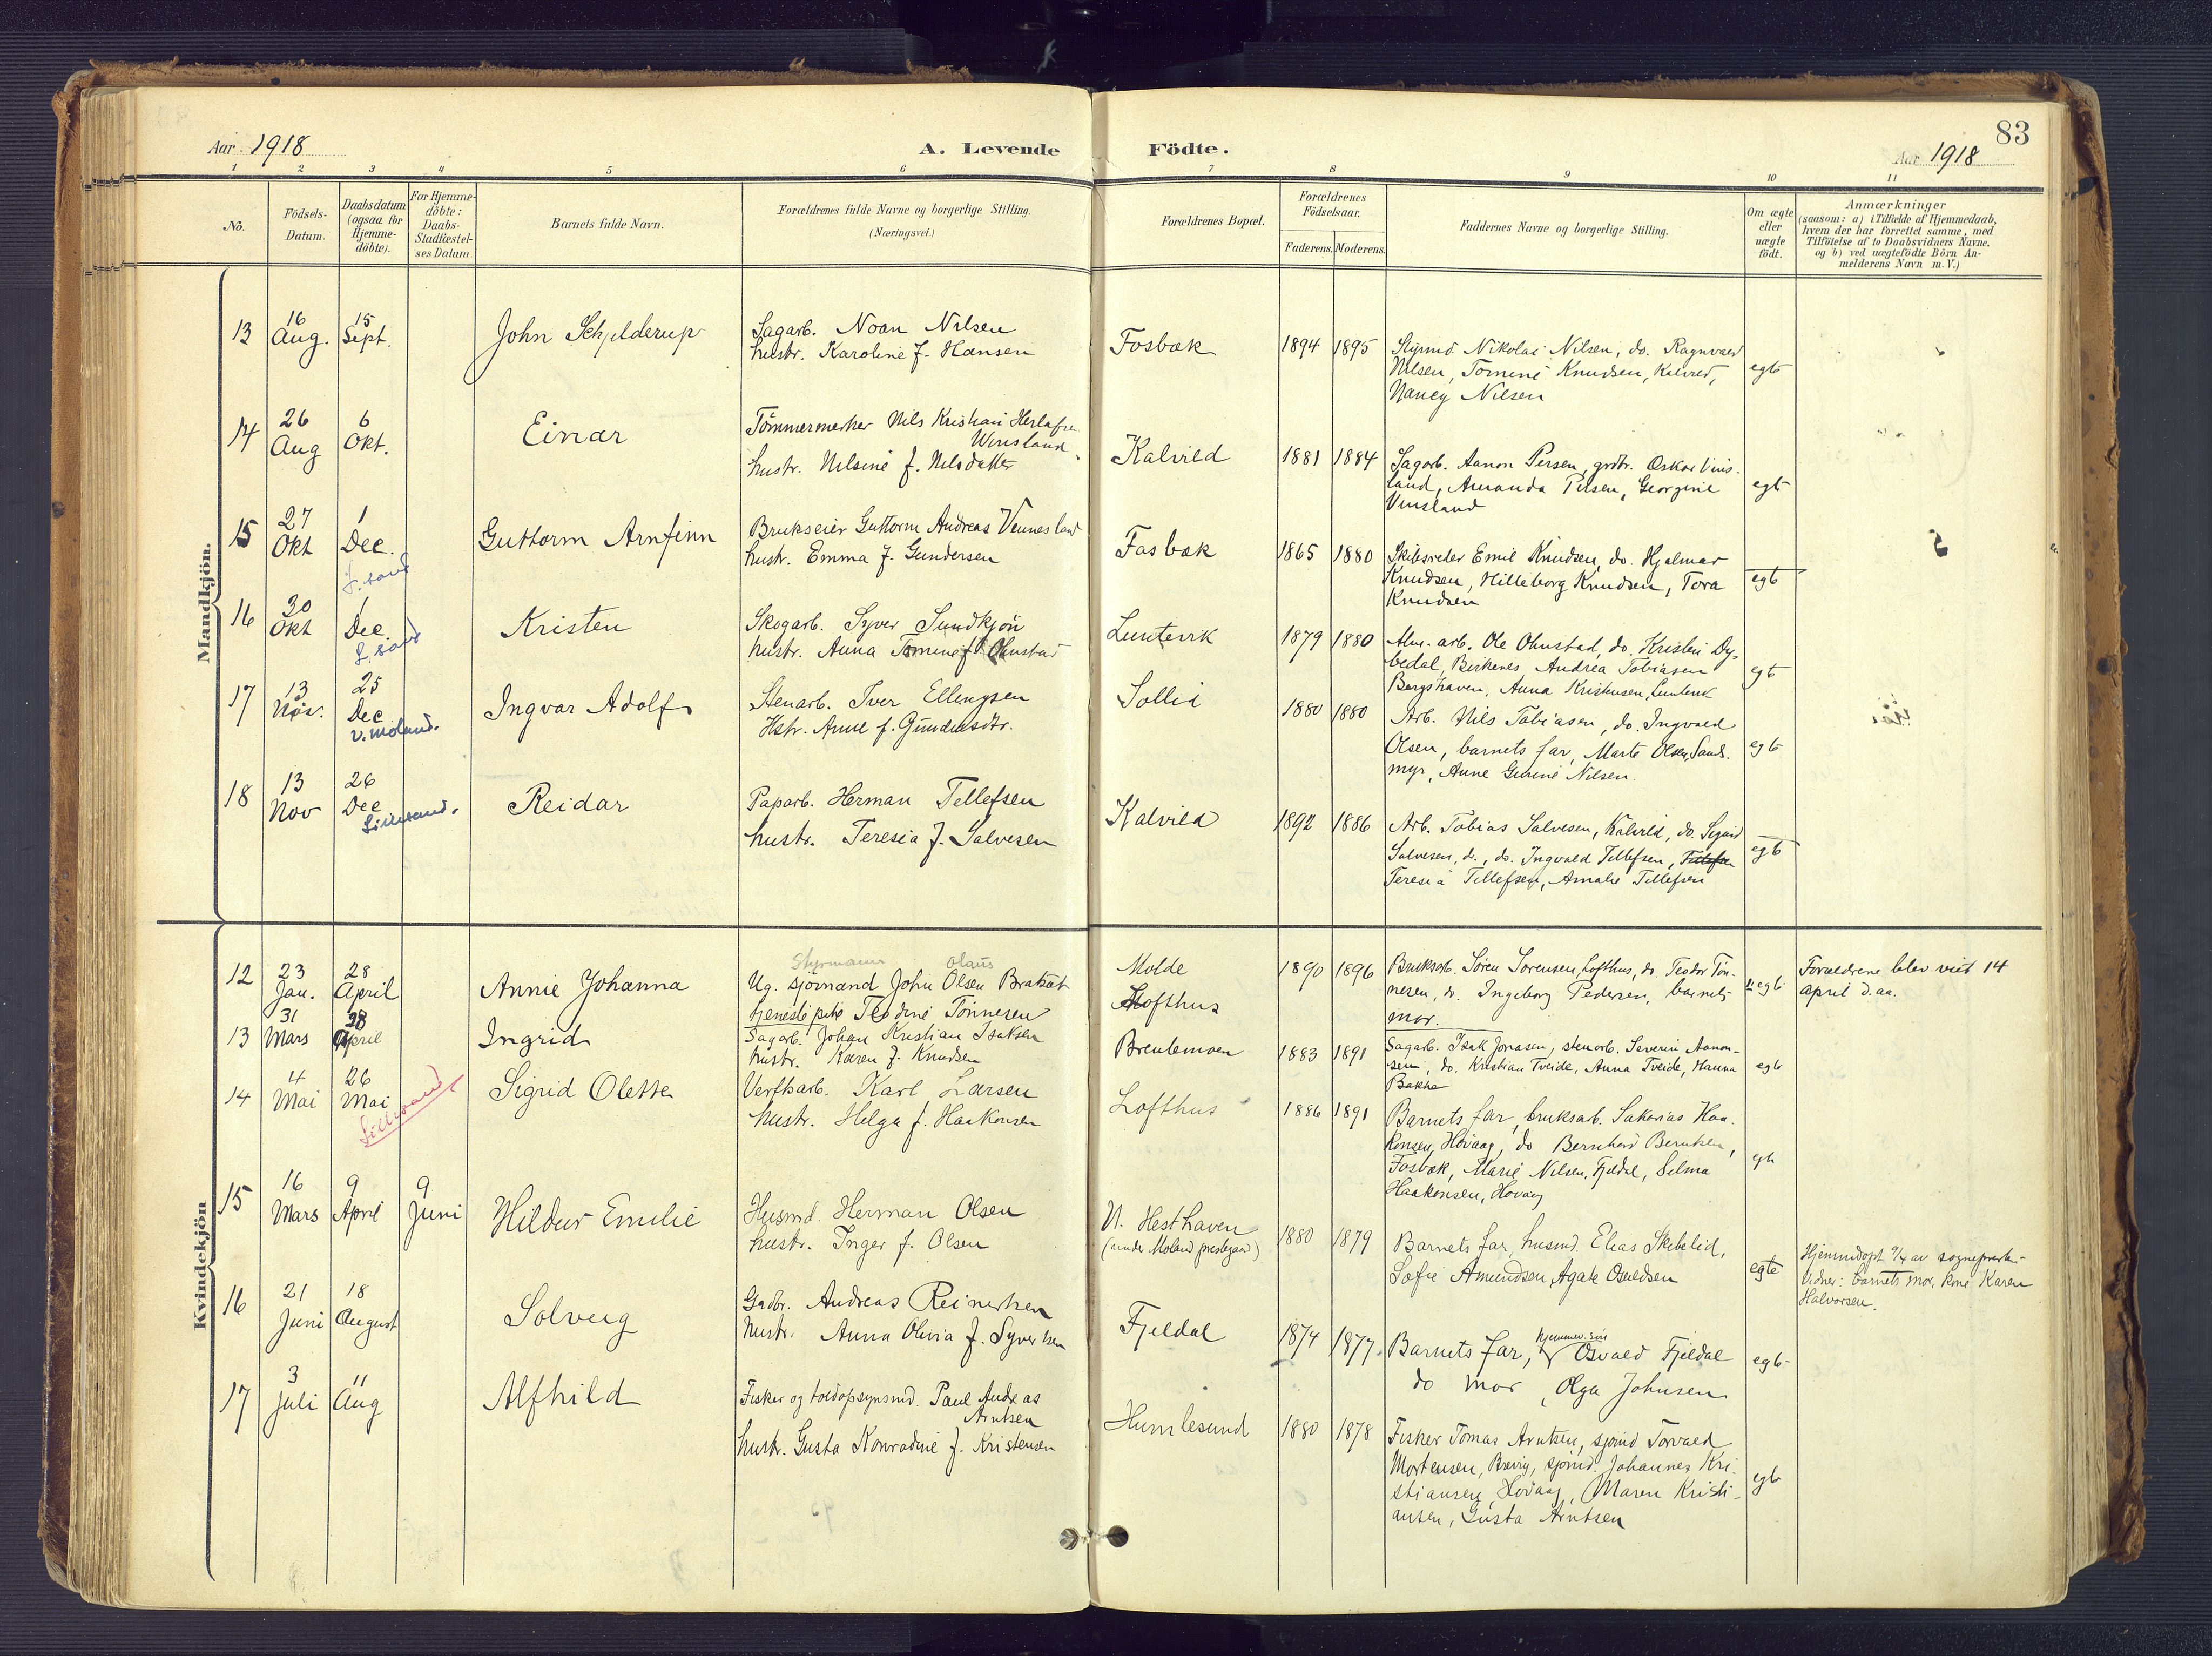 83
Aar 1918
A. Levende Födte.
Aar 1918
1 2 3 4 5 6 7 8 9 10 11
No.
Födsels-
Datum.
Daabsdatum
(ogsaa for
Hjemme-
döbte).
For Hjemme-
döbte:
Daabs-
Stadfæstel-
ses Datum.
Barnets fulde Navn.
Forældrenes fulde Navne og borgerlige Stilling.
(Næringsvei.)
Forældrenes Bopæl.
Forældrenes
Födselsaar.
Faderens. Moderens.
Faddernes Navne og borgerlige Stilling.
Om ægte
eller
uægte
födt.
Anmærkninger
(saasom: a) i Tilfælde af Hjemmedaab,
hvem der har forrettet samme, med
Tilföielse af to Daabsvidners Navne.
og b) ved uægtefödte Börn An-
melderens Navn m. V.)
Mandkjön.
13
16
Aug.
15
Sept.
John Schjelderup
Sagarb. Noan Nilsen
hustr. Karoline f. Hansen
Fosbæk
1894 1895
Styrmd. Nikolai Nilsen, do. Ragnvald
Nilsen, Tomine Knudsen, Kalvild,
Nancy Nilsen
egt
14
26
Aug
6
Okt.
Einar
Tömmermerker Nils Kristian
hustr. Nilsine f. Nilsdatter
Kalvild
1881 1884
Sagarb. Aanon Persen, grdbr. Oskar Vins-
land, Amanda Persen, Georgine
Vinsland
egt
15
27
Okt
1
Dec.
Guttorm Arnfinn
Brukseier Guttorm Andreas Vennesland
hustr. Emma f. Gundersen
Fosbæk
1865 1880
Skibsreder Emil Knudsen, do. Hjalmar
Knudsen, Hilleborg Knudsen, Tora
Knudsen
egt
16
30
Okt
1
Dec.
Kristen
Skogarb. Syver Sundkjön
hustr. Anna Tomine f. Ohnstad
Luntevik
1879 1880
Alm. arb. Ole Ohnstad, do. Kristen Dy-
bedal, Birkenes, Andrea Tobiasen
Bergshaven, Anna Kristensen, Luntevik
egt
17
13
Nov.
25
Dec
V. Moland.
Ingvar Adolf
Stenarb. Iver Ellingsen
Hstr. Anne f. Gundersdtr.
Sollii
1880 1880
Arb. Nils Tobiasen, do. Ingvald
Olsen, barnets far, Marte Olsen, Sands-
myr, Anne Gurine Nilsen.
egt
18
13
Nov
26
Dec
Lillesand.
Reidar
Paparb. Herman Tellefsen
hustr. Teresia f. Salvesen
Kalvild
1892 1886
Arb. Tobias Salvesen, Kalvild, do. Sigurd
Salvesen, do., do. Ingvald Tellefsen,
Teresia Tellefsen, Amalie Tellefsen
egt
Kvindekjön
12
23
Jan.
28
April
Annie Johanna
Styrmann Olaus
Ug. sjömand John Olsen Brakstt
tjenestepike Teodine Tönnesen
Molde
Lofthus
1890 1896
Bruksarb. Sören Sörensen, Lofthus, do. Teodor Tön-
nesen, do. Ingeborg Pedersen, barnets
mor.
uegt
Forældrene blev viet 14
april d. aa.
13
31
Mars
28
April
Ingrid
Sagarb. Johan Kristian Isaksen
hustr. Karen f. Knudsen
Breulemoen
1883 1891
Sagarb. Isak Jonasen, stenarb. Severin Aanon-
sen, do. Kristian Tveide, Anna Tveide, Hanna
Bakke
egt
14
4
Mai
26
Mai
Lillesand
Sigrid Olette
Verftsarb. Karl Larsen
hustr. Helga f. Haakonsen
Lofthus
1886 1891
Barnets far, bruksarb. Sakarias Haa-
konsen, Hövaag, do Bernhard Berntsen,
Fosbæk, Marie Nilsen, Fjeldal, Selma
Haakonsen, Hövaag
egt
15
16
Mars
9
April
9
Juni
Hildur Emilie
Husmd. Herman Olsen
hustr. Inger f. Olsen
N. Hesthaven
(under Moland prestegaard)
1880 1879
Barnets far, husmd. Elias Skibelid,
Sofie Amundsen, Agate Osuldsen
egte
Hjemmedöpt 9/4 av sogneprest-
Vidner: barnets mor, kone Karen
Halvorsen.
16
21
Juni
18
August
Solveig
Grdbr. Andreas Reinertsen
hustr. Anna Olivia f. Syvertsen
Fjeldal
1874 1877
Barnets far, hjemmev. sön Osvald Fjeldal
do mor, Olga Johnsen
egt
17
3
Juli
11
Aug
Alfhild
Fisker og toldopsynsmd. Paul Andreas
Arntsen
hustr. Gusta Konradine f. Kristensen
Humlesund
1880 1878
Fisker Tomas Arntsen, sjömd Torvald
Mortensen, Brevig, sjömd. Johannes Kri-
stiansen, Hövaag, Maren Kristi-
ansen, Gusta Arntsen
egt